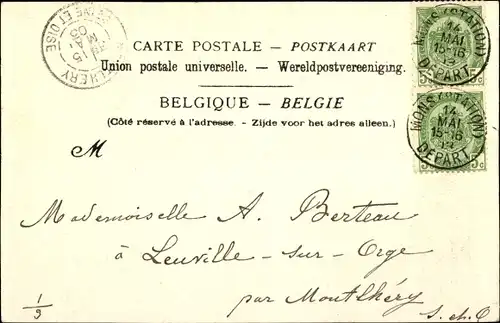 CARTE POSTALE – POSTKAART
Union postale universelle. — Wereldpostvereeniging.
BELGIQUE – BELGIE
(Côté réservé à l'adresse. - Zijde voor het adres alleen.)
M
Mademoiselle A. Berteau
à Leuville-sur-Orge
par Montlhéry
S. et O
1/9
MONS (STATION)
14
MAI
15-16
DEPART
MONS (STATION)
14
MAI
15-16
DEPART
15
MAI
03
SEINE ET OISE